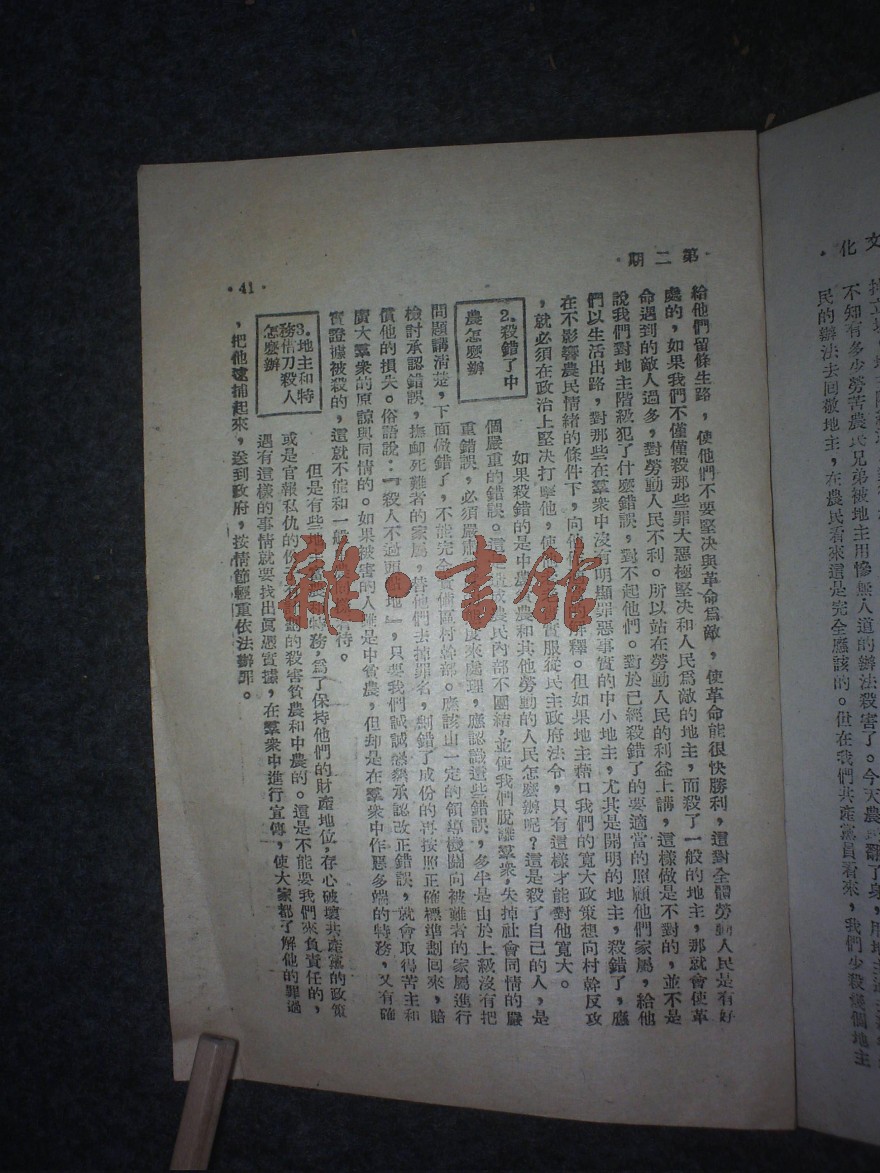 文化·
民的辦法去回敬地主，在農民看來這是完全應該的。但在我們共產黨員看來，我們少殺幾個地主
·第二期·
給他們留條生路，使他們不要堅决與革命爲敵，使革命能很快勝利，這對全體勞動人民是有好
處的，如果我們不僅僅殺那些罪大惡極堅决和人民爲敵的地主，而殺了一般的地主，那就會使革
命遇到的敵人過多，對勞動人民不利。所以站在勞動人民的利益上講，這樣做是不對的，並不是
說我們對地主階級犯了什麽錯誤，對不起他們。對於已經殺錯了的要適當的照顧他們家屬，給他
們以生活出路，對那些在羣衆中沒有明顯罪惡事實的中小地主，尤其是開明的地主，殺錯了，應
在不影響農民情緒的條件下，向他 解釋。但如果地主藉口我們的寬大政策想向村幹反攻
，就必須在政治上堅决打擊他，使 實服從民主政府法令，只有這樣才能對他寬大。
2.殺錯了中
農怎麽辦
如果殺錯的是中農 農和其他勞動的人民怎麽辦呢？這是殺了自己的人，是
個嚴重的錯誤。這 農民內部不團結，並使我們脫離羣衆，失掉社會同情的嚴
重錯誤，必須嚴肅 度來處理，應認識這些錯誤，多半是由於上級沒有把
問題講清楚，下面做錯了，不能完全 區村幹部。應該由一定的領導機關向被難者的家屬進行
檢討承認錯誤，撫卹死難者的家屬，替他們去掉罪名，劃錯了成份的再按照正確標準劃回來，賠
償他的損失。俗語說：「殺人不過頭 地」，只要我們誠誠懇懇承認改正錯誤，就會取得苦主和
廣大羣衆的原諒與同情的。如果被害的人雖是中貧農，但却是在羣衆中作惡多端的特務，又有確
實證據被殺的，這就不能和一般 看待。
3.地主和特
務借刀殺人
怎麽辦
但是有些地主 特務，爲了保持他們的財產地位，存心破壞共產黨的政策
或是官報私仇的 劃的殺害貧農和中農的。這是不能要我們來負責任的，
遇有這樣的事情就要找出眞憑實據，在羣衆中進行宣傳，使大家都了解他的罪過
，把他逮捕起來，送到政府，按情節輕重依法辦罪。
·41·
雜·書館